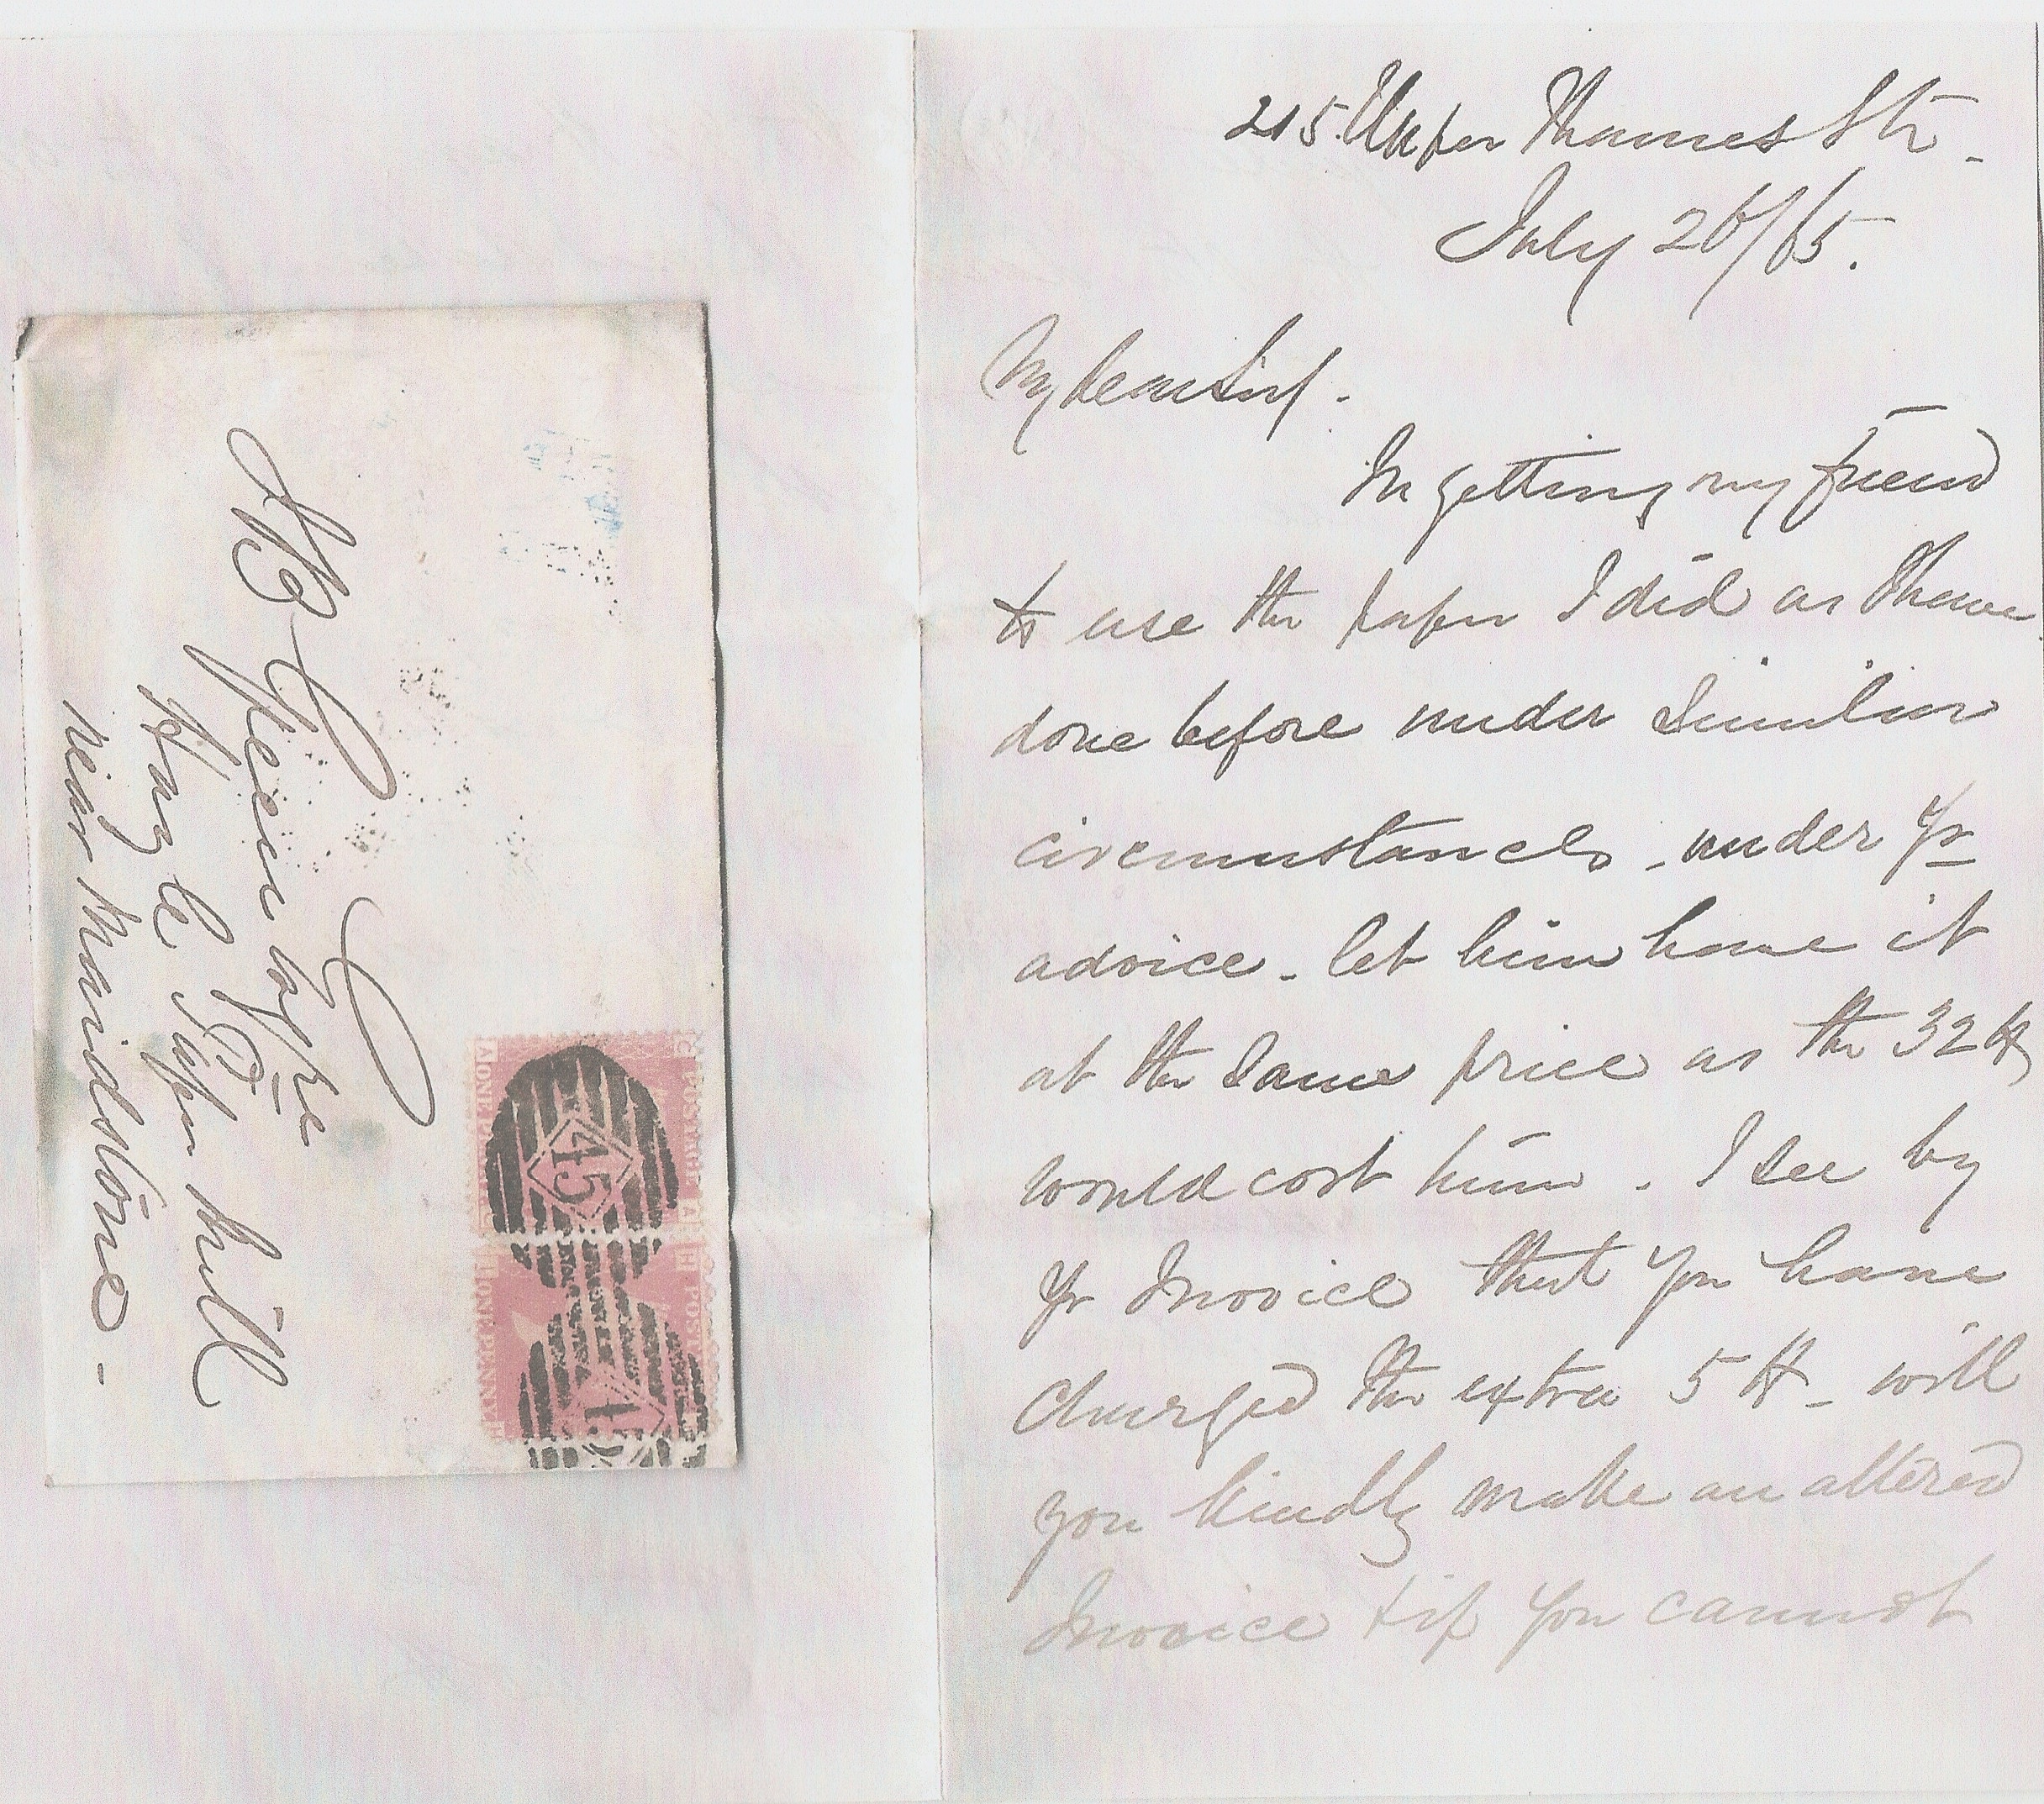 215. Upper Thames Str.
July 26/65.
My dear Sir.
In getting my friend
to use the paper I did as I have
done before under Similar
circumstances - under yr
advice - let him have it
at the same price as the 32 lb
would cost him. I see by
yr Invoice that you have
charged the extra 5 lb - will
you kindly make an altered
Invoice & if you cannot
Green Esqre
Hayle Paper Mill
near Maidstone -
45
POSTAGE
ONE PENNY